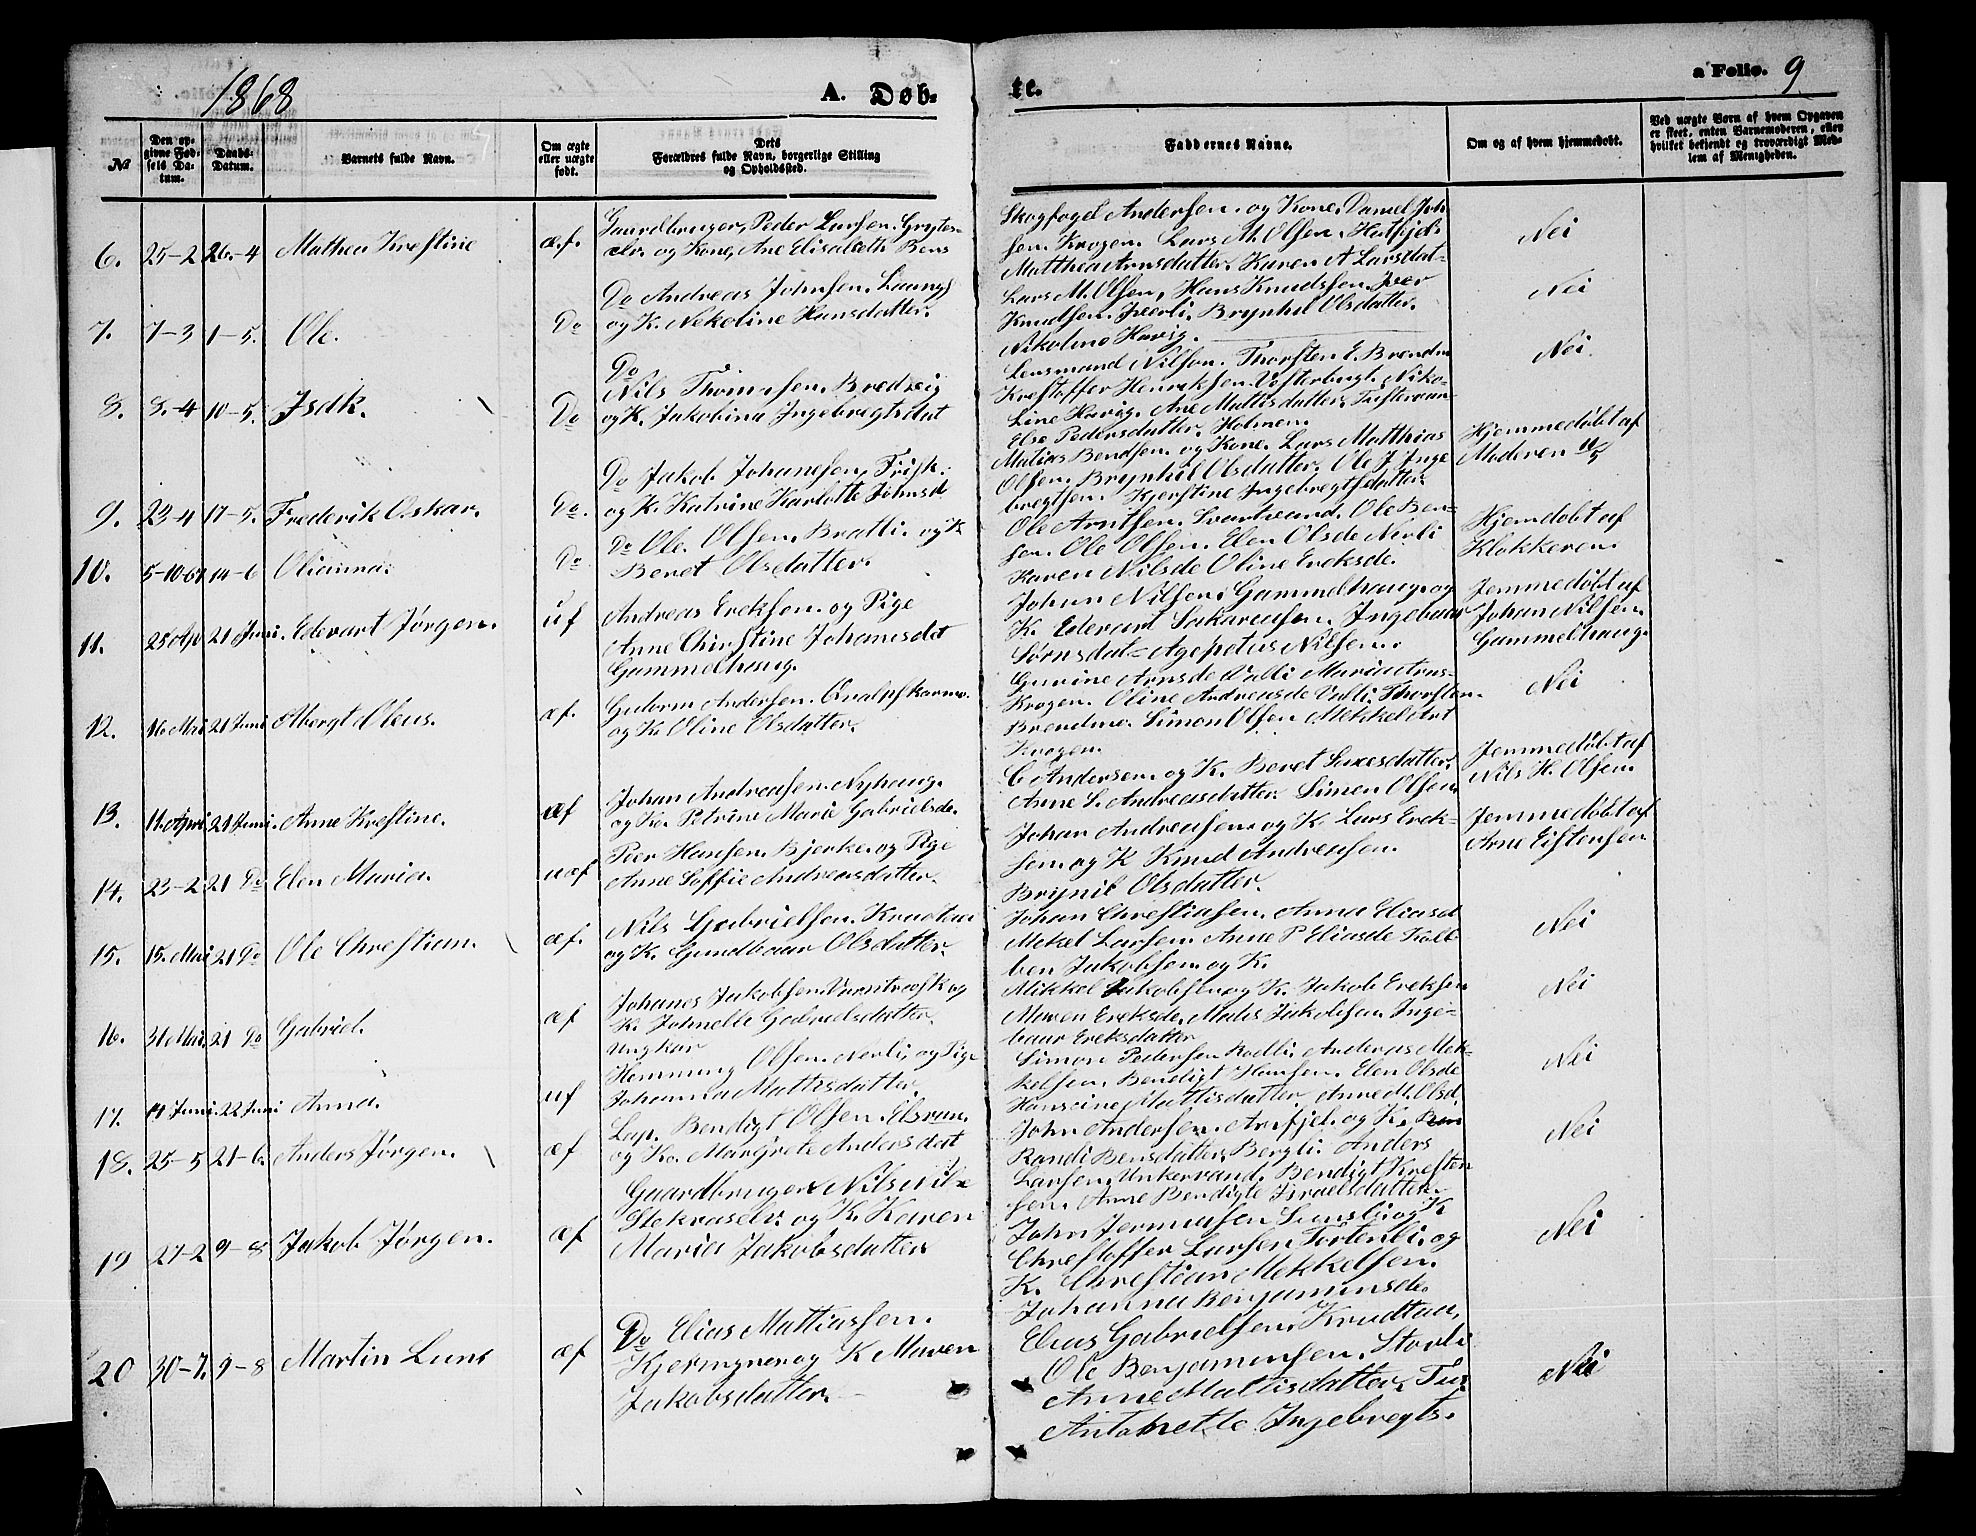 1868
A. Døb-
te.
a Folio. 9
No
Den op-
givne Fød-
sels Da-
tum.
Daabs-
Datum.
Barnets fulde Navn.
Om ægte
eller uægte
født.
Dets
Forældres fulde Navn, borgerlige Stilling
og Opholdssted.
Faddernes Navne.
Om og af hvem hjemmedøbt.
Ved uægte Børn af hvem Opgaven
er skeet, enten Barnemoderen, eller
hvilket bekjendt og troværdigt Med-
lem af Menigheden.
6. 25-2 26-4 Mathea Krestine æf.
Gaardbruger Peder Larsen. Grytes-
elv. og Kone, Ane Elisabeth Bens
Skogfoged Andersen og Kone. Daniel Joh
sen. Krogen. Lars M. Olsen. Hatfjeld.
Matthea Arnsdatter. Karen A Larsdat-
Nei
7. 7-3 1-5. Ole. Do
Do Andreas Johnsen.
og K. Nekoline Hansdatter.
Lars M. Olsen, Hans Knudsen. Iver
Knudsen. Iverli. Brynhil Olsdatter.
Nikoline Havig.
Nei
8. 8-4 10-5. Isak. Do
Do
Nils Thomasen. Bredvig
og K. Jakobina Ingebregtsdat
Lensmand Nilsen. Thorsten E. Brendmo
Krestoffer Henriksen. Vesterbugt. Niko-
line Havig. Ane Mattisdatter.
Else Pedersdatter. Holmen.
Nei.
9. 23-4 17-5. Frederik Oskar. Do.
Do Jakob Johanesen,
og K. Katrine Karlotte Johnsd
Matias Bendsen og Kone. Lars Matthias
Olsen. Brynhil Olsdatter. Ole J. Inge
bregtsen. Kjerstine Ingebregtsdatter.
Hjemmedøbt af
Moderen
10. 5-10-67 14-6 Olianna. Do
Do Ole Olsen. Bratli. og K
Beret Olsdatter.
Ole Arntsen. Svartvand. Ole Ben-
sen. Ole Olsen. Elen Olsde Nerli
Karen Nilsde Oline Ereksde.
Hjemdøbt af
Klokkeren.
11. 25 Apr 21 Juni. Edevart Jørgen. uf
Andreas Ereksen og Pige
Anne Christine Johannsdat
Gammelhaug.
Johan Nilsen. Gammelhaug. og
K. Edevart Sakariasen. Ingebaar
Sørnsdat= Agepetus Nilsen.
Jemmedøbt af
Johan Nilsen.
Gammelhaug.
12. 16 Mai 21 Juni Albergt Oleus. æf.
Gutorm Andersen.
og K. Oline Olsdatter.
Gurine Arnsde Valli Maria Arns-
Krogen. Oline Andreasde Valli Thorsten
Brendmo. Simon Olsen Mekkel Art
Krogen.
Nei
13. 11. April 21 Juni. Anne Krestine. æf
Johan Andreasen Nyhaug.
og K. Petrine Marie Gabrielsde.
C Andersen og K. Beret
Anne S. Andreasdatter Simon Olsen
Jemmedøbt af
Nils H. Olsen.
14. 23-2 21 Do Elen Maria. uæf
Peer Hansen. Bjerke. og Pige
Anne Soffie Andreasdatter.
Johan Andreasen og K. Lars Erek-
sen og K Knud Andreasen.
Brynil Olsdatter.
Jemmedøbt af
Arne Eistensen
15. 15. Mai 21 Do Ole Chrestian. æf.
Nils Gabrielsen. Krudtaa
og K. Gundbaar Olsdatter.
Johan Chrestiasen. Anna Eliasd
Mekel Larsen. Anne P. Eliasde Kolb
ben Jakobsen og K.
Nei
16. 31 Mai. 21 Do Gabriel. æf
Johanes Jakobsen Varntresk og
K. Johnette Gabrielsdatter.
Mikkel Jakobsen og K. Jakob Ereksen
Maren Ereksde. Mates Jakobsen. Inge-
baur Ereksdatter
Nei
17. 14 Juni. 22 Juni Anna. uf
Ungkar
Hemming Olsen. Nerli. og Pige
Johanna Mattisdatter.
Simon Pedersen Rødli. Anderas Mek-
kelsen, Bendigt Hansen. Elen Olsde
Hanseine Mattisdatter. Anne M. Olsd.
Nei
18. 25-5 21-6. Anders Jørgen. æf
Lap. Bendigt Olsen. Elsvan.
og K. Margrete Andersdat
John Andersen. Arnfjel. og K.
Randi Bensdatter. Bergli. Anders
Larsen. Unkervand. Bendigt Kresten
sen. Anne Bendigte Israelsdatter.
Nei
19 27-2 9-8 Jakob Jørgen. æf
Gaardbruger Nils
Stekvaselv. og K. Karen
Maria Jakobsdatter
John Jermiasen og K
Chrestoffer Larsen Tortenli. og
K. Chrestian Mekkelsen.
Johanna Benjaminsde
Nei
20 30-7. 9-8 Martin Luns æf
Do Elias Mattiassen.
og K Maren
Jakobsdatter.
Elias Gabrielsen. Krudtaa,
Ole Benjaminsen. Storli
Anne Mattisdatter.
Antonette Ingebregts.
Nei